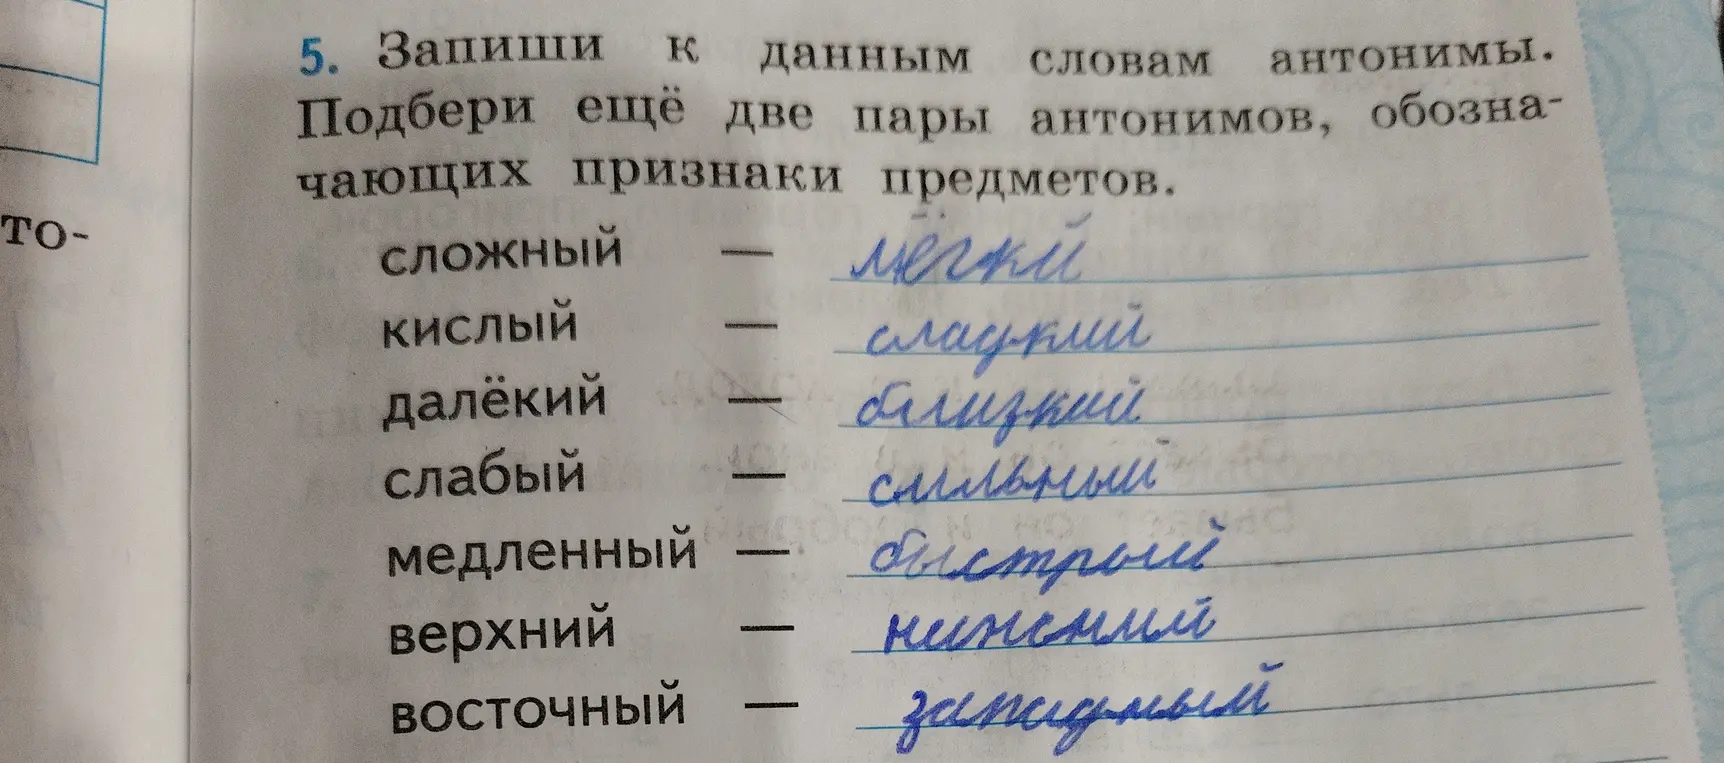 5. Запиши к данным словам антонимы.
Подбери ещё две пары антонимов, обозна-
чающих признаки предметов.
то-
сложный — лёгкий
кислый — сладкий
далёкий — близкий
слабый — сильный
медленный — быстрый
верхний — нижний
восточный — западный